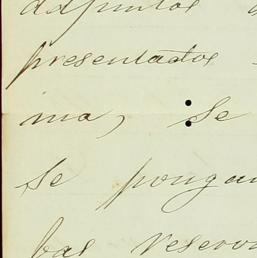 adjuntos
presentados
ma, : se
se pongan
bas reserv